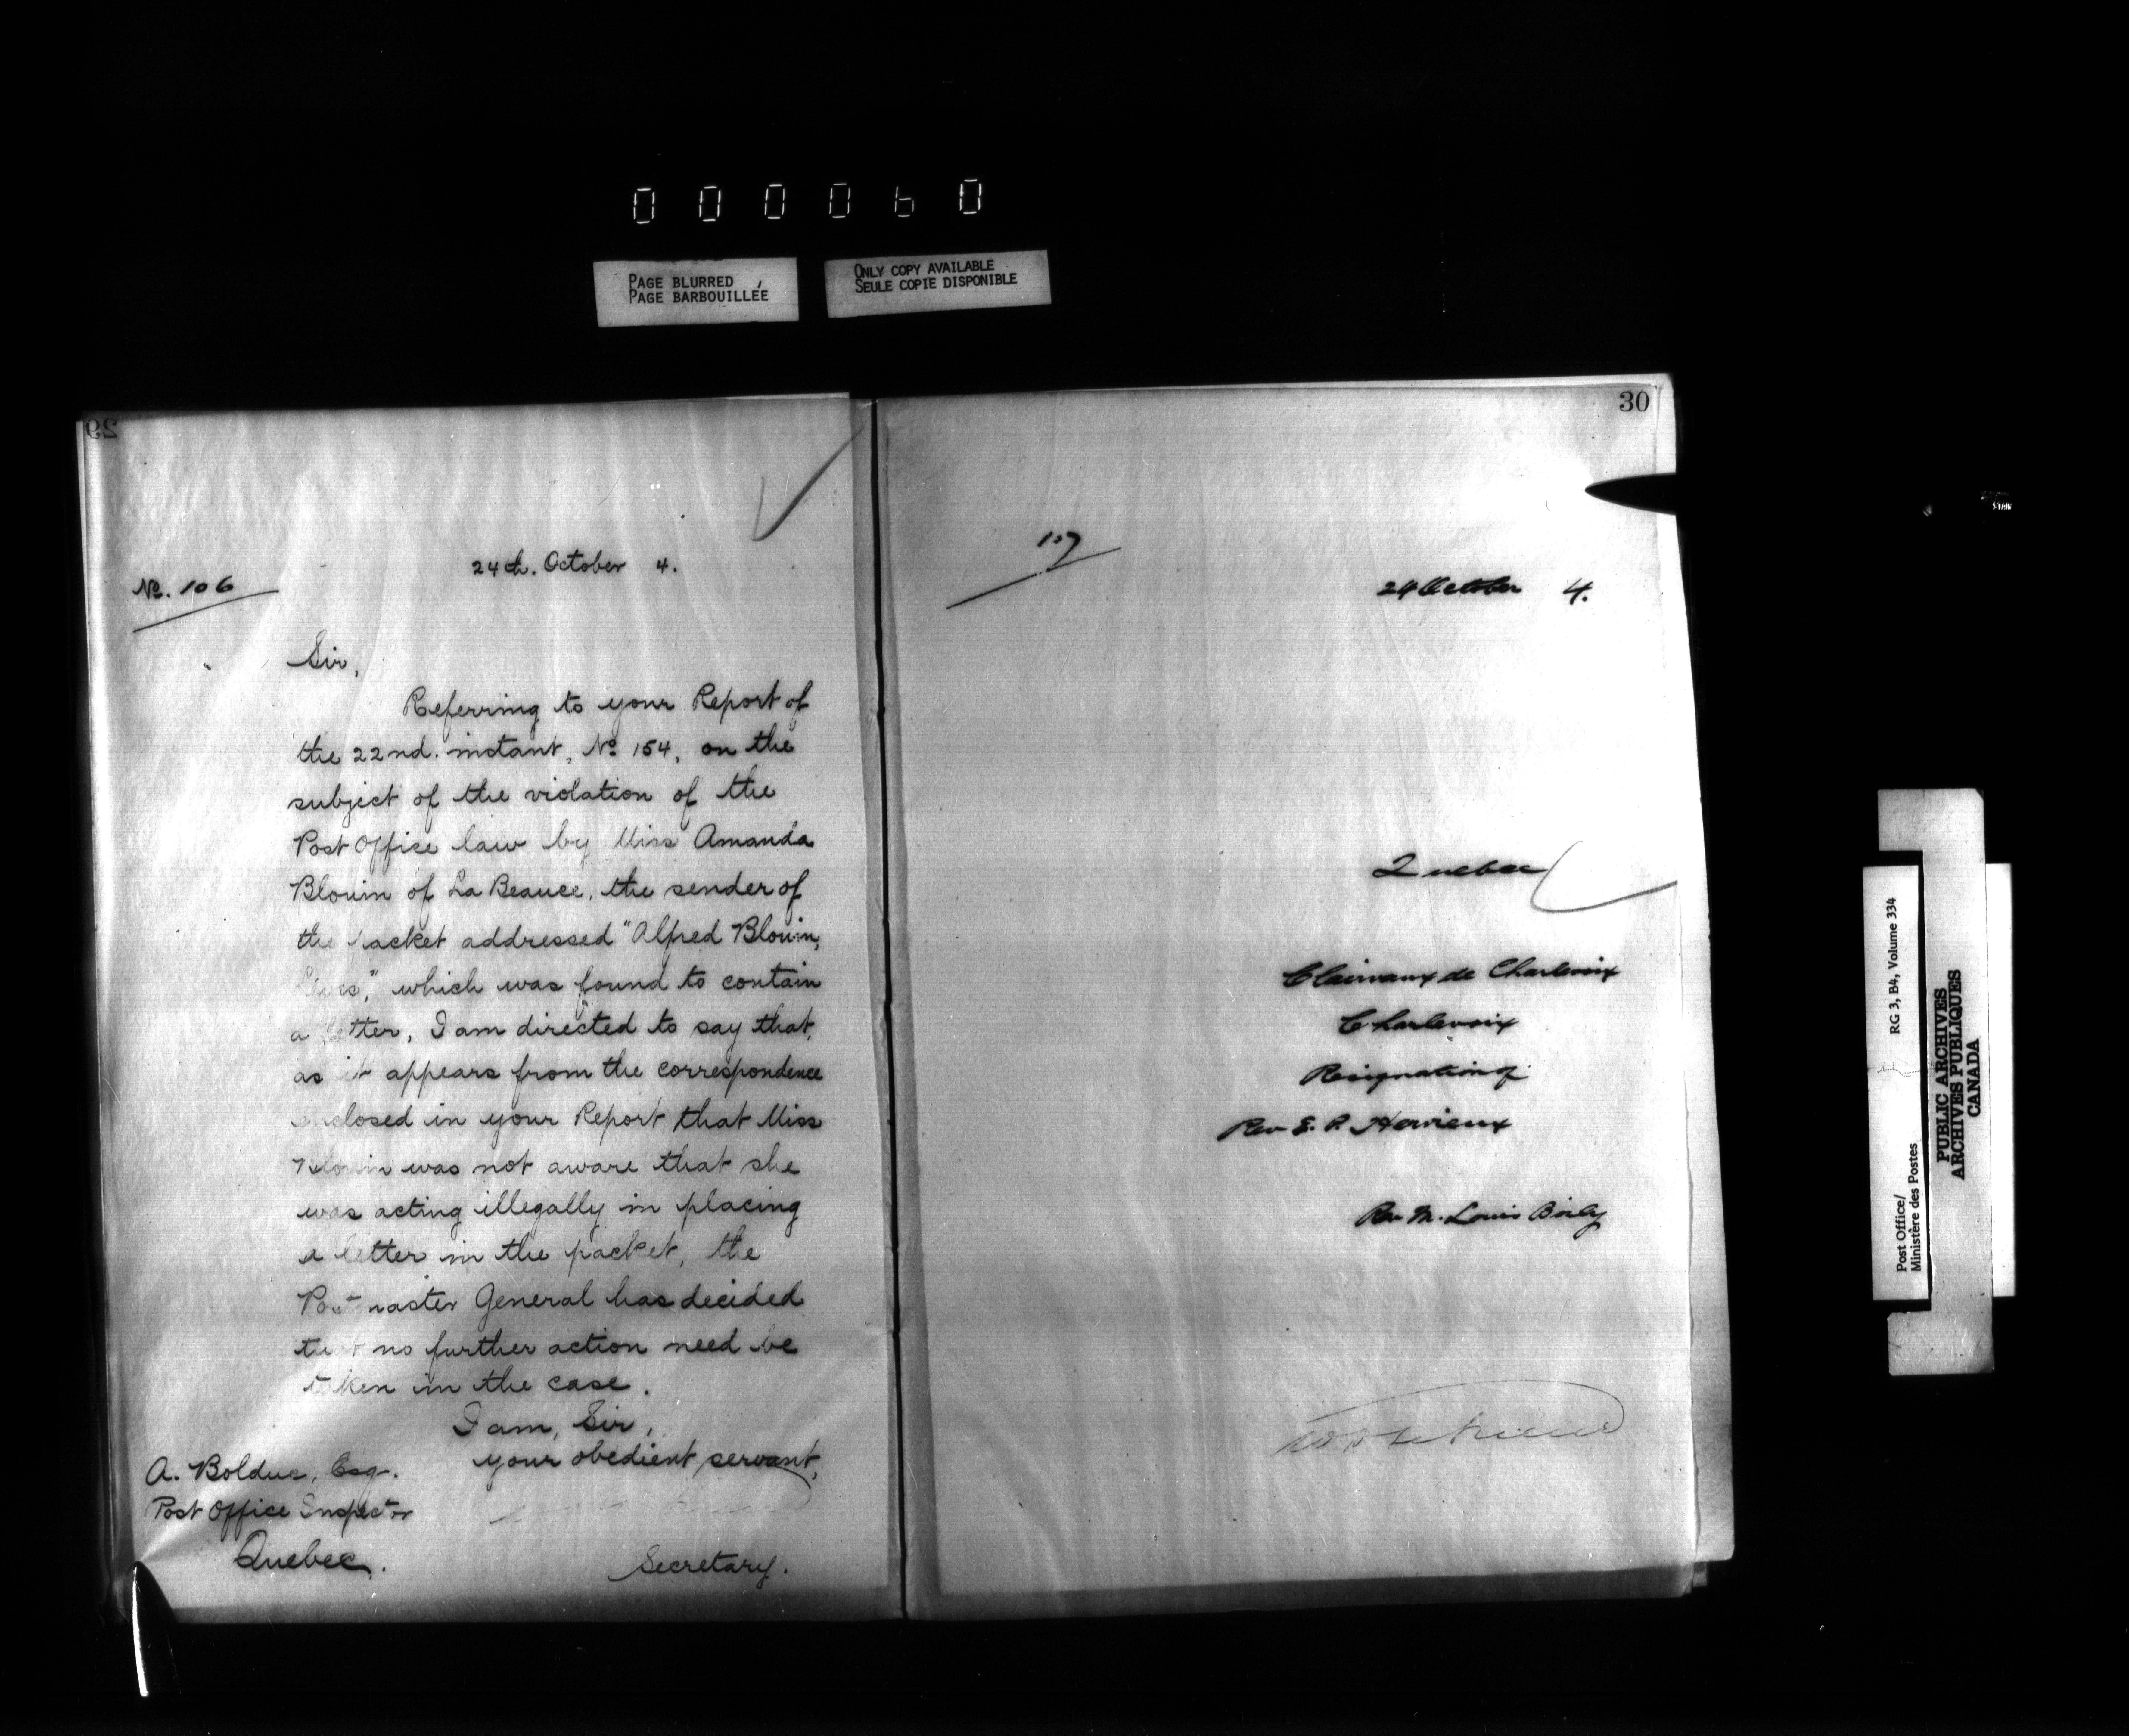 000060
PAGE BLURRED
PAGE BARBOUILLÉE
ONLY COPY AVAILABLE
SEULE COPIE DISPONIBLE
29
24th. October 4.
No. 106
Sir,
Referring to your Report of
the 22nd. instant, No 154, on the
subject of the violation of the
Post Office law by Miss Amanda
Blouin of La Beauce, the sender of
the packet addressed "Alfred Blouin,
which was found to contain
a letter, I am directed to say that,
as it appears from the correspondence
enclosed in your Report that Miss
Blouin was not aware that she
was acting illegally in placing
a letter in the packet, the
Postmaster General has decided
that no further action need be
taken in the case.
I am, Sir,
your obedient servant,
A. Bolduc, Esq.
Post Office Inspector
Quebec.
Secretary.
30
107
24 October 4.
Quebec
Clairvaux de Charlevoix
Charlevoix
Resignation of
Rev E. P. Hervieux
Rev M. Louis Boily
RG 3, B4, Volume 334
Post Office/
Ministère des Postes
PUBLIC ARCHIVES
ARCHIVES PUBLIQUES
CANADA